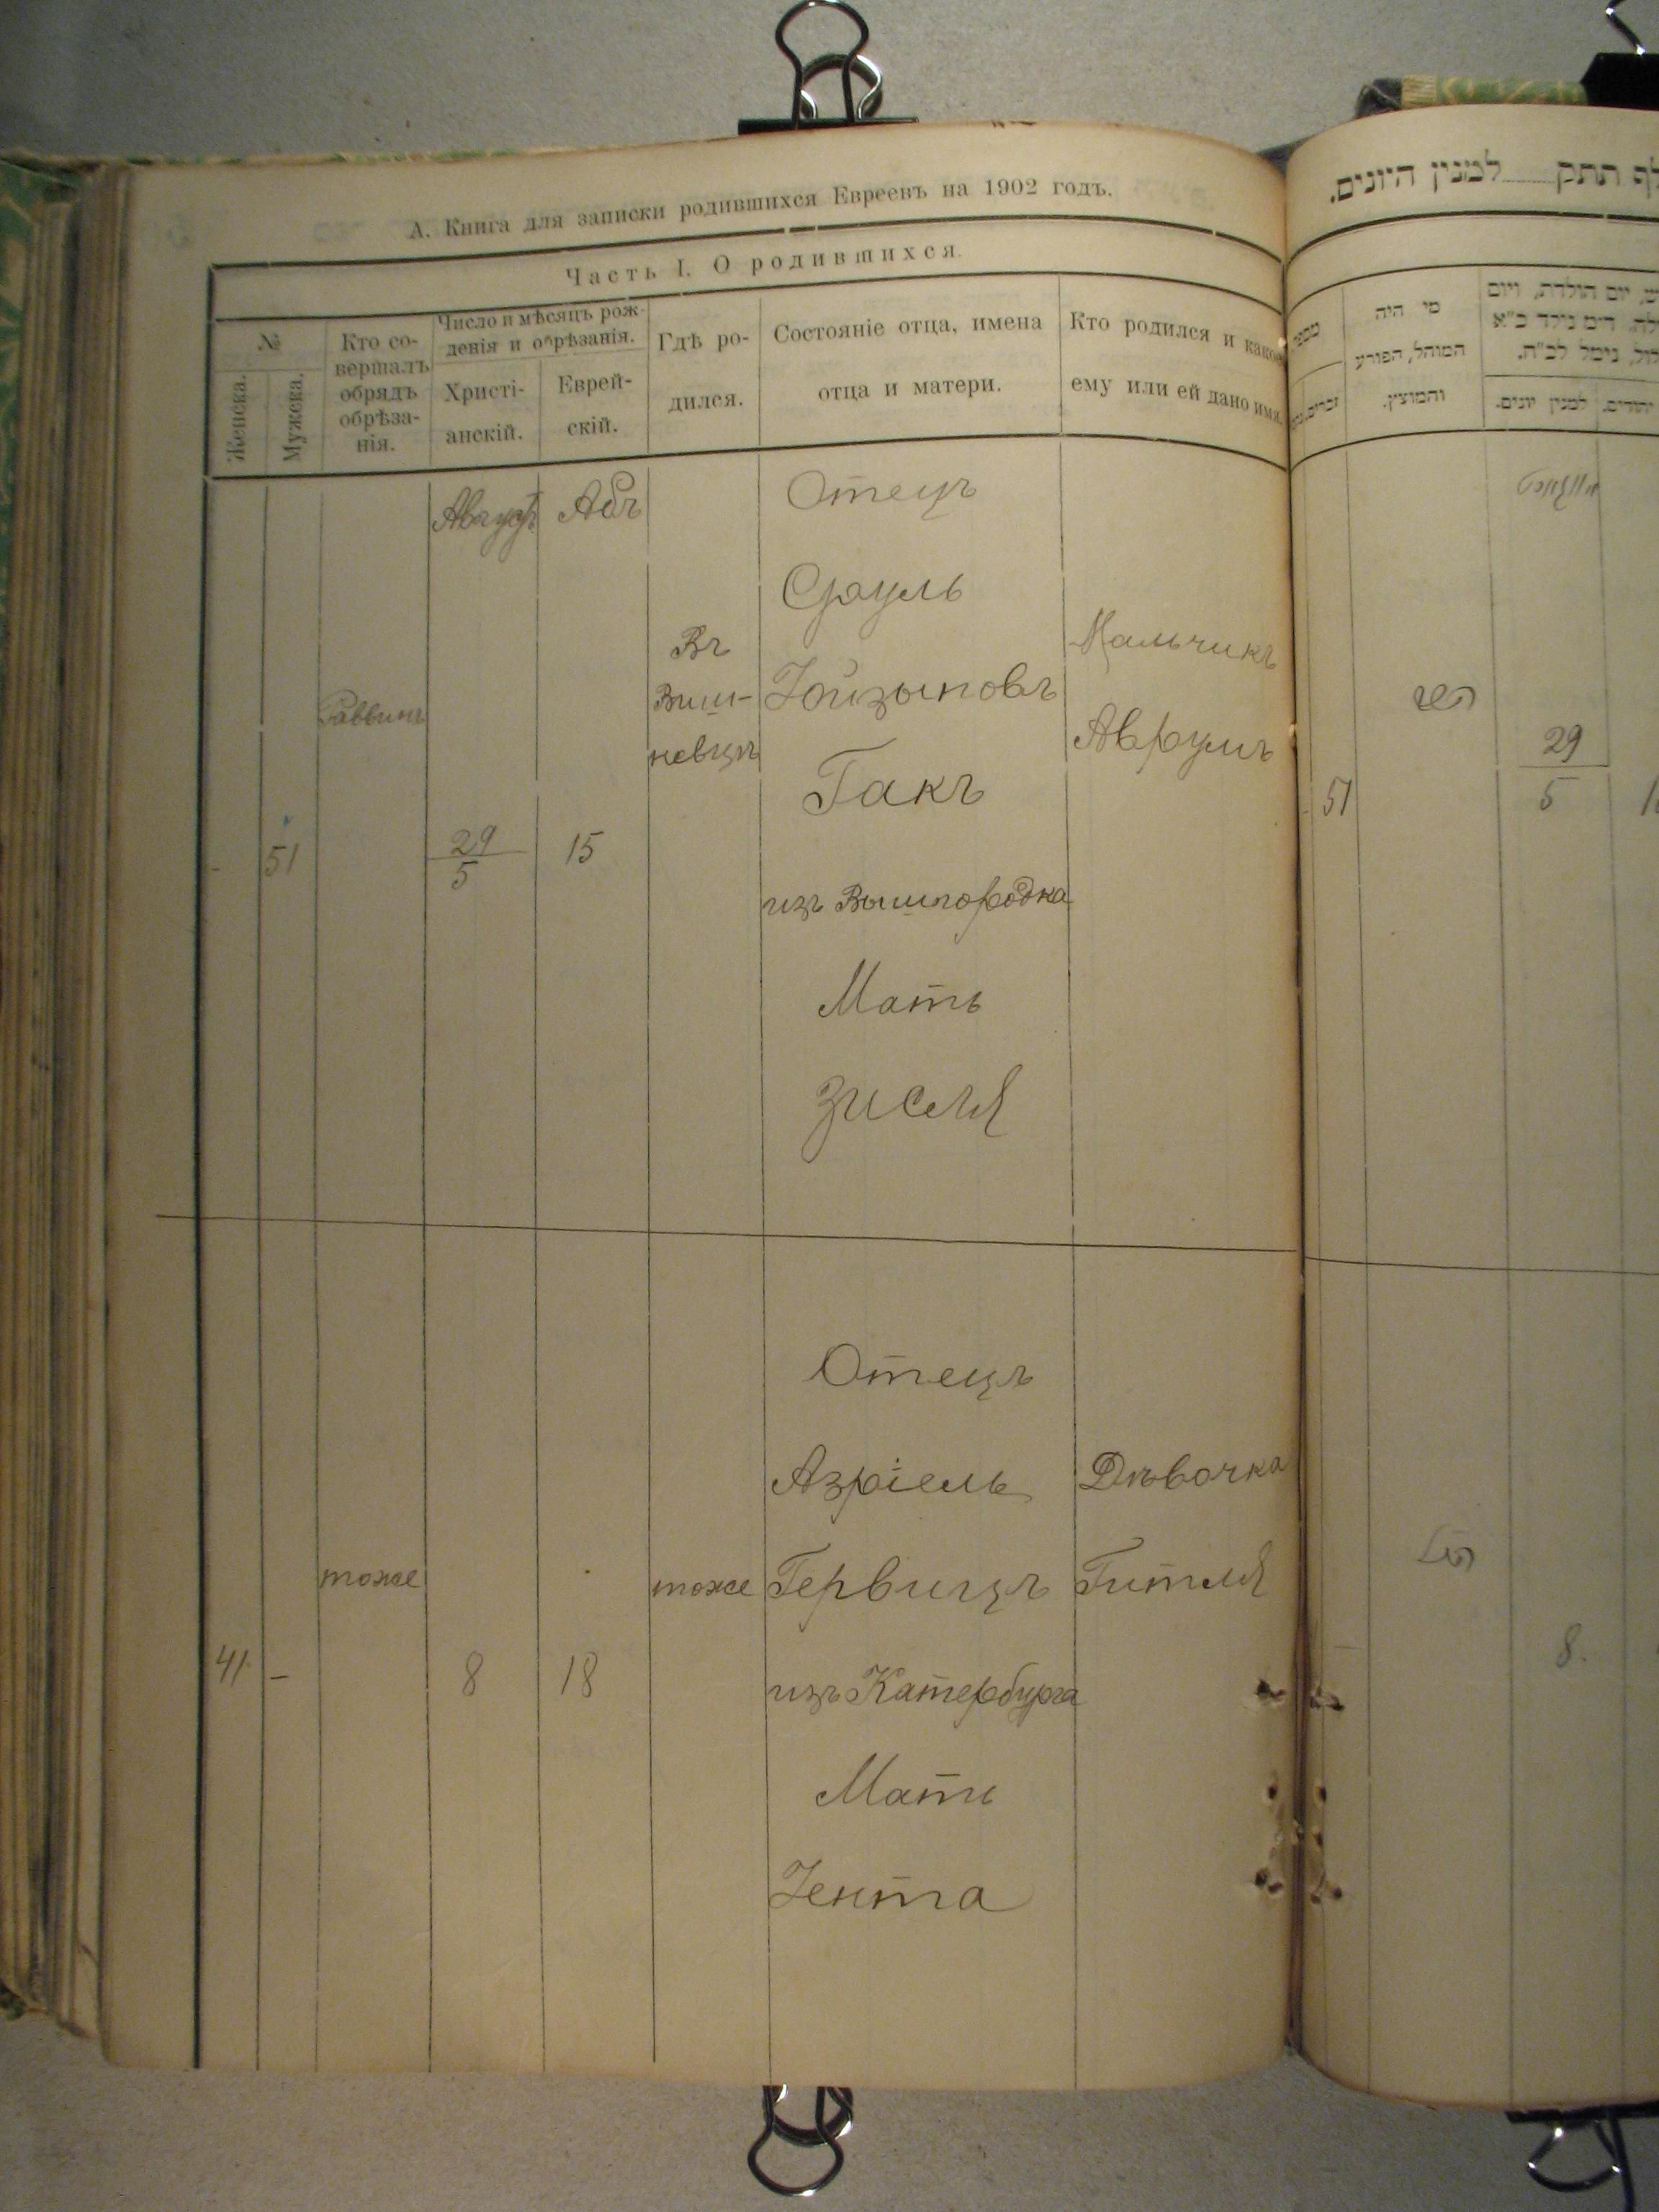 А. Книга для записки родившихся Евреевъ на 1902 годъ.
Часть I. О родившихся.
№
Женска.
Мужеска.
Кто со-
вершалъ
обрядъ
обрѣза-
нія.
Число и мѣсяцъ рож-
денія и обрѣзанія.
Христі-
анскій.
Еврей-
скій.
Гдѣ ро-
дился.
Состояніе отца, имена
отца и матери.
Кто родился и какое
ему или ей дано имя.
51
Раввинъ
Августъ
29
5
Абъ
15
Въ
Виш-
невцѣ
Отецъ
Сруль
Іойзыповъ
Гакъ
изъ Вышгородка
Мать
Зисля
Мальчикъ
Аврумъ
41
-
тоже
8
18
тоже
Отецъ
Азріель
Гервицъ
изъ Катербурга
Мать
Іента
Дѣвочка
Гитля
לף תתק למנין היונים.
מי היה
המוהל, הפורע
והמוצץ.
יום הולדת, ויום
למנין יונים.
51
29
5
8.